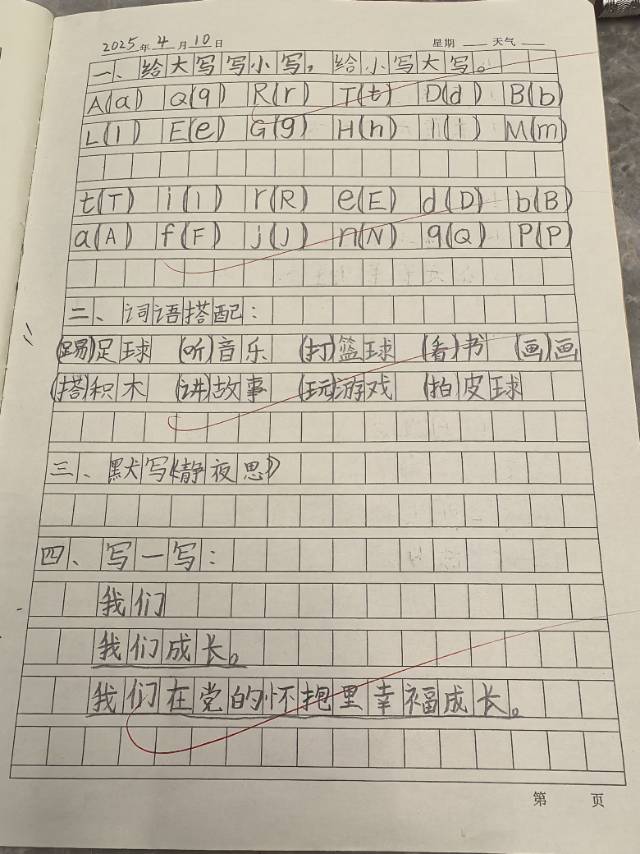 2025年4月10日 星期 天气
一、给大写写小写，给小写大写。
A(a) Q(q) R(r) T(t) D(d) B(b)
L(l) E(e) G(g) H(h) I(i) M(m)
t(T) i(I) r(R) e(E) d(D) b(B)
a(A) f(F) j(J) n(N) q(Q) P(P)
二、词语搭配：
(踢)足球 (听)音乐 (打)篮球 (看)书 (画)画
(搭)积木 (讲)故事 (玩)游戏 (拍)皮球
三、默写《静夜思》
四、写一写：
我们
我们成长。
我们在党的怀抱里幸福成长。
第 页